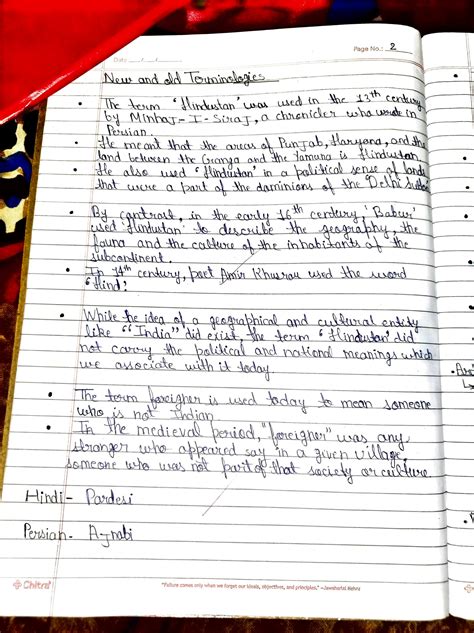 Page No.: 2
Date
New and old Terminologies
• The term 'Hindustan' was used in the 13th century
by Minhaj-I-Siraj, a chronicler who wrote in
Persian.
• He meant that the areas of Punjab, Haryana, and the
land between the Ganga and the Yamuna is Hindustan
• He also used 'Hindustan' in a political sense of lands
that were a part of the dominions of the Delhi
• By contrast, in the early 16th century, 'Babur'
used 'Hindustan' to describe the geography, the
fauna and the culture of the inhabitants of the
subcontinent.
• In 14th century, poet Amir Khusrau used the word
'Hind'.
• While the idea of a geographical and cultural entity
like "India" did exist, the term 'Hindustan' did
not carry the political and national meanings which
we associate with it today.
• The term foreigner is used today to mean someone
who is not Indian
• In the medieval period, "foreigner" was any
stranger who appeared say in a given village,
someone who was not part of that society or culture.
Hindi- Pardesi
Persian- Ajnabi
Chitra
"Failure comes only when we forget our ideals, objectives, and principles." –Jawaharlal Nehru